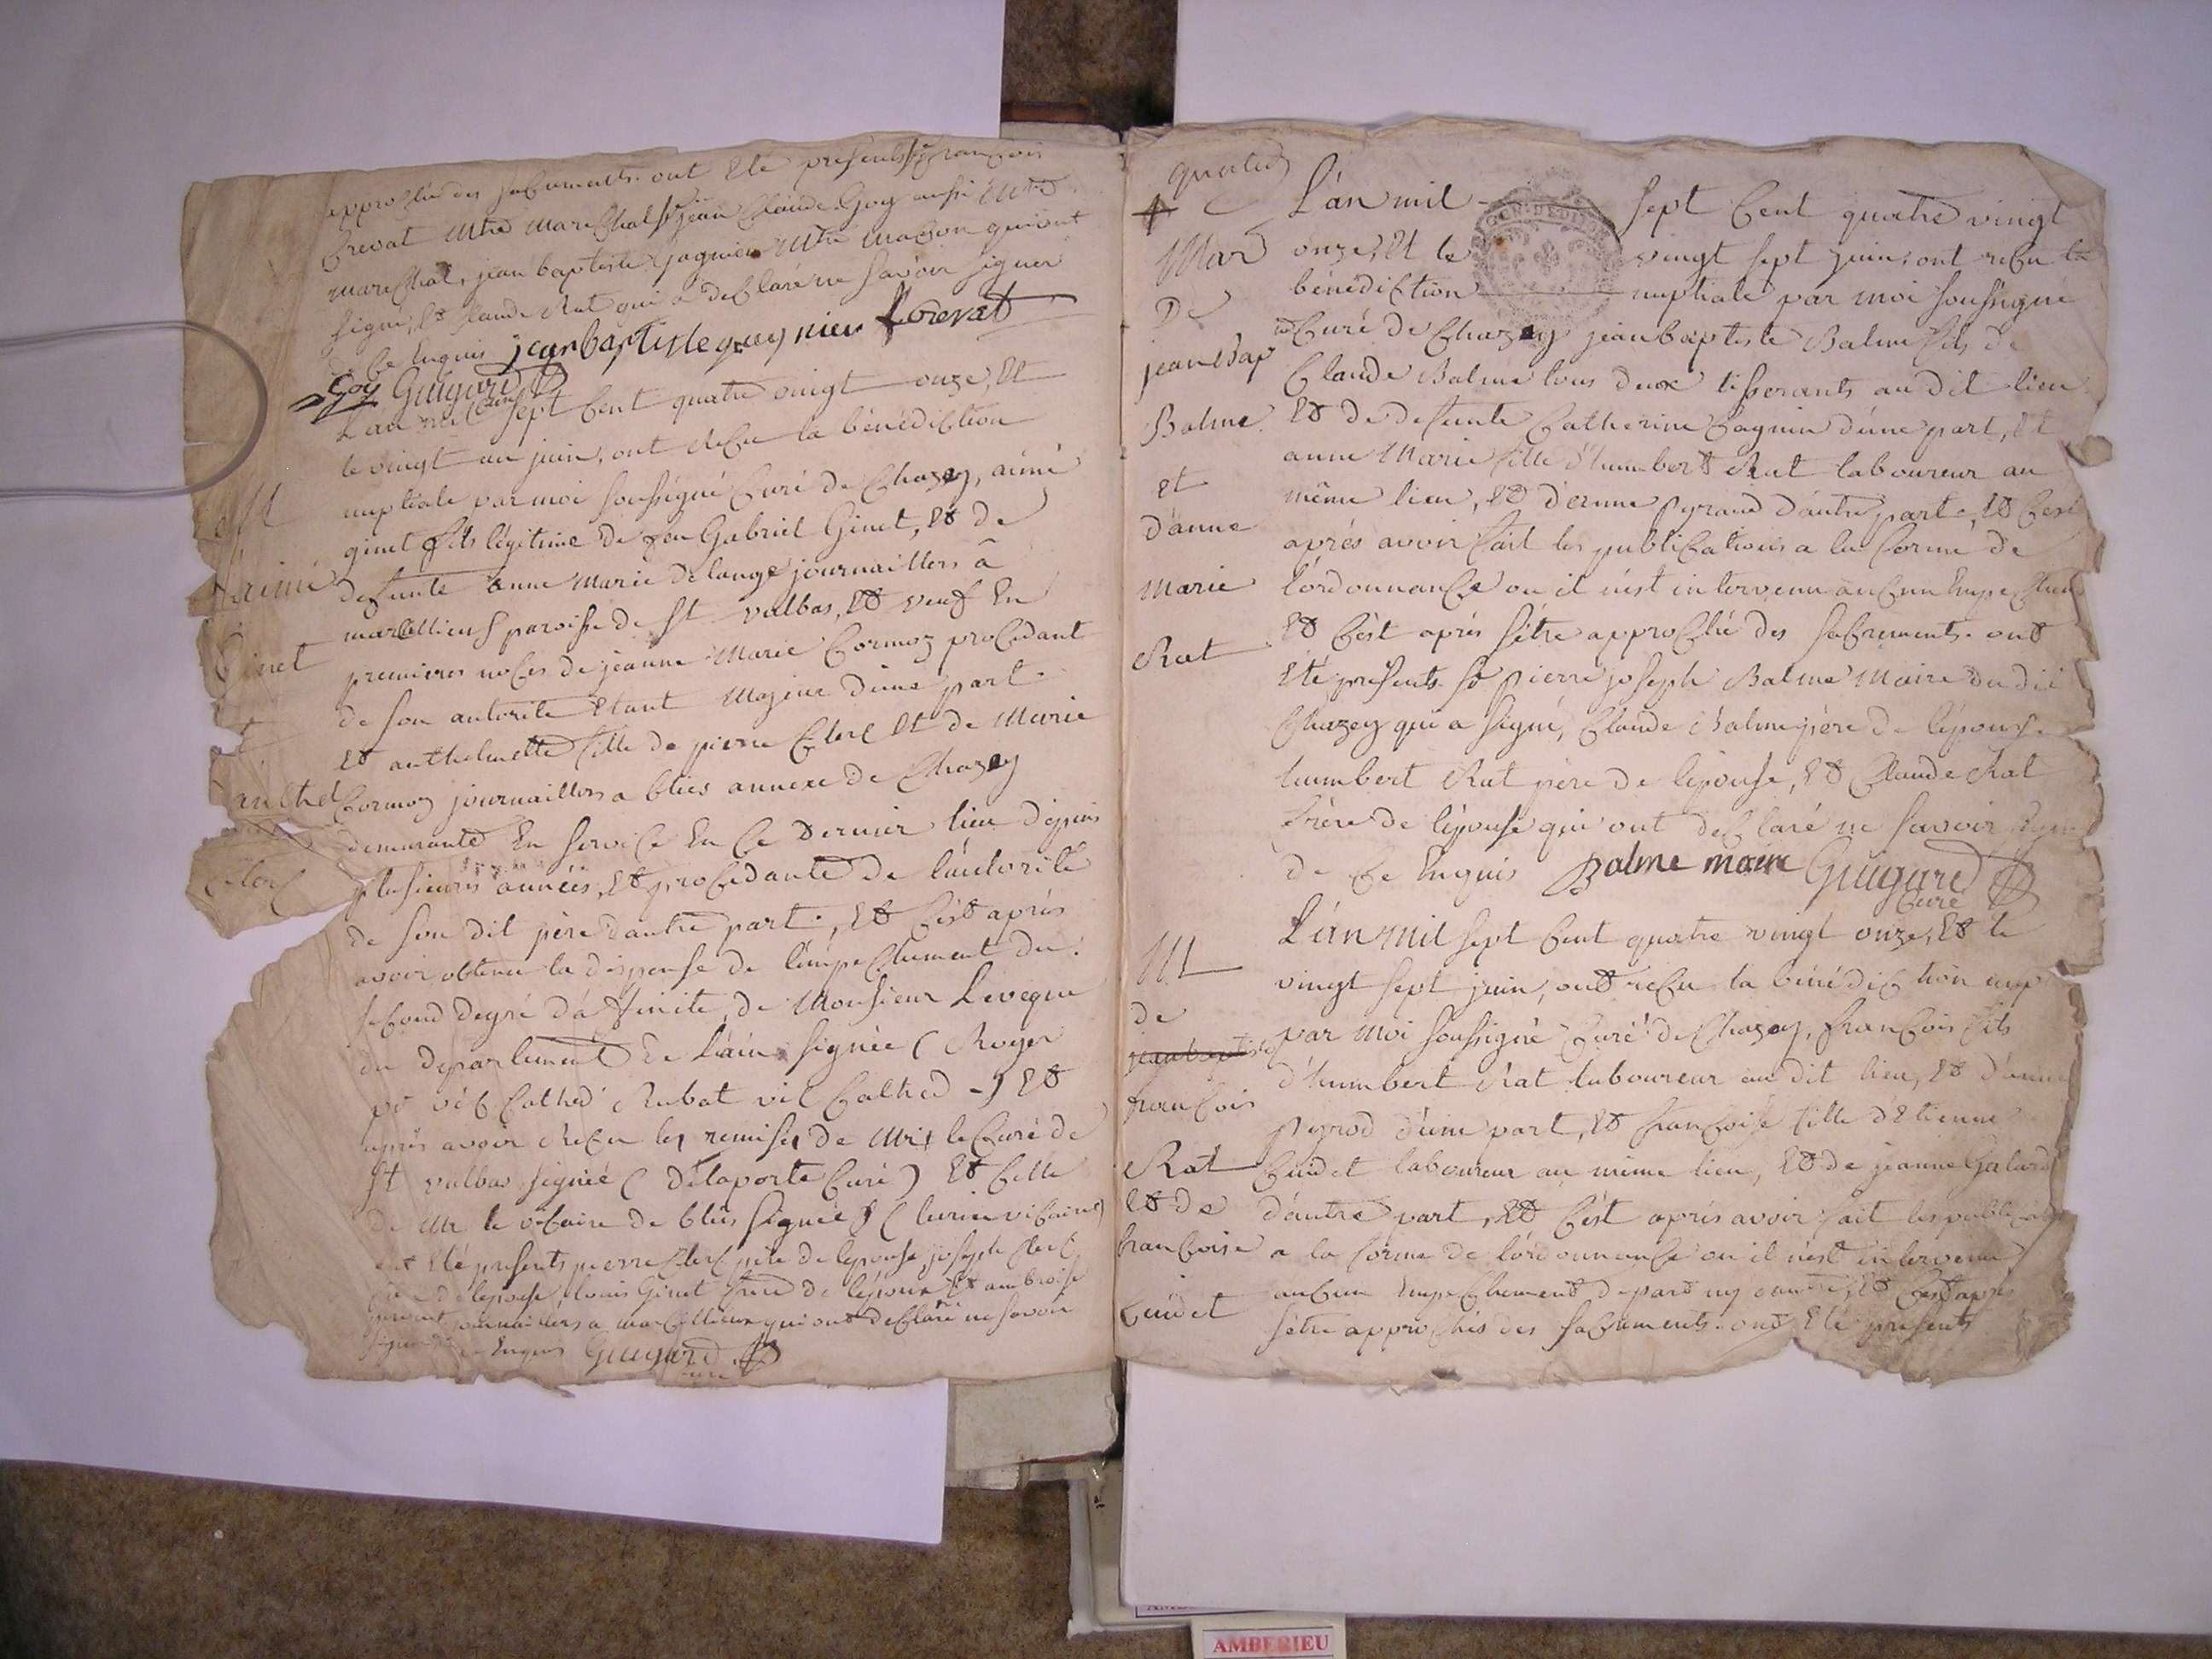 approché des sacrements. ont été presents sr françois
Crevat Mtre Marechal, sr jean Claude Goy aussi Mtre
marechal, jean baptiste gagnieu Mtre maçon qui ont
signé, et Claude Rat qui a declaré ne savoir signer
de ce Enquis jean baptiste guegnieu Crevat
Goy Guigard curé
L'an mil sept cent quatre vingt onze, et
le vingt un juin, ont recu la bénédiction
nuptiale par moi soussigné curé de Chazey, aimé
ginet fils légitime de feu Gabriel Ginet, et de
defunte anne Marie delange journailliers à
marcillieux paroisse de st vulbas, et veuf En
premieres noces de jeanne Marie Cormoz procedant
de son autorité étant Majeur d'une part
et anthelmette fille de pierre Clerc et de Marie
Cormoz journailliers a blies annexe de Chazey
demurante En service En ce dernier lieu depuis
plusieurs années, et procedante de l'autorité
de son dit père d'autre part, et c'est après
avoir obtenu la dispense de l'empechement du
second degré d'afinité, de Monsieur L'eveque
du departement de L'ain signée ( Royer
vic Cathed Rubat vic Cathed -) et
après avoir recu les remises de Mr le Curé de
st vulbas signée ( delaporte Curé ) et celle
de Mr le vicaire de blies signée
ont été presents pierre Clerc père de lepouse, joseph Clerc
de lepouse, louis Ginet frere de lépoux et ambroise
journailliers a marcillieux qui ont declaré ne savoir
signer de ce Enquis Guigard curé
M
aimé
Ginet
et
anthel
Clerc
quarter
L'an mil sept cent quatre vingt
onze, et le vingt sept juin, ont recu la
bénédiction nuptiale par moi soussigné
Curé de Chazey jean baptiste Balme fils de
Claude Balme tous deux tisserants au dit lieu
et de defunte Catherine Cagnin d'une part, et
anne Marie fille d'humbert Rat laboureur au
même lieu, et d'anne peyraud d'autre part, et c'est
après avoir fait les publications a la forme de
l'ordonnance ou il n'est intervenu aucun Empechem
et c'est après s'étre approché des sacrements. ont
été presents sr pierre joseph Balme Maire du dit
Chazey qui a signé, Claude Balme père de l'époux
humbert Rat père de l'epouse, et Claude Rat
frère de l'épouse qui ont declaré ne savoir signer
de ce Enquis Balme maire Guigard curé
Mar
De
jean bap
Balme
et
d'anne
Marie
Rat
L'an mil sept cent quatre vingt onze, et le
vingt sept juin, ont recu la bénédiction nup
par moi soussigné Curé de Chazey, françois fils
d'humbert Rat laboureur au dit lieu, et d'anne
peyrod d'une part, et françoise fille d'Etienne
Cuidet laboureur au même lieu, et de jeanne Galard
d'autre part, et c'est après avoir fait les publications
a la forme de l'ordonnance ou il n'est intervenu
aucun Empechement de part ny d'autre, et c'est après
s'étre approchés des sacrements. ont été presents
M
de
jean baptiste
françois
Rat
et de
françoise
Cuidet
AMBERIEU